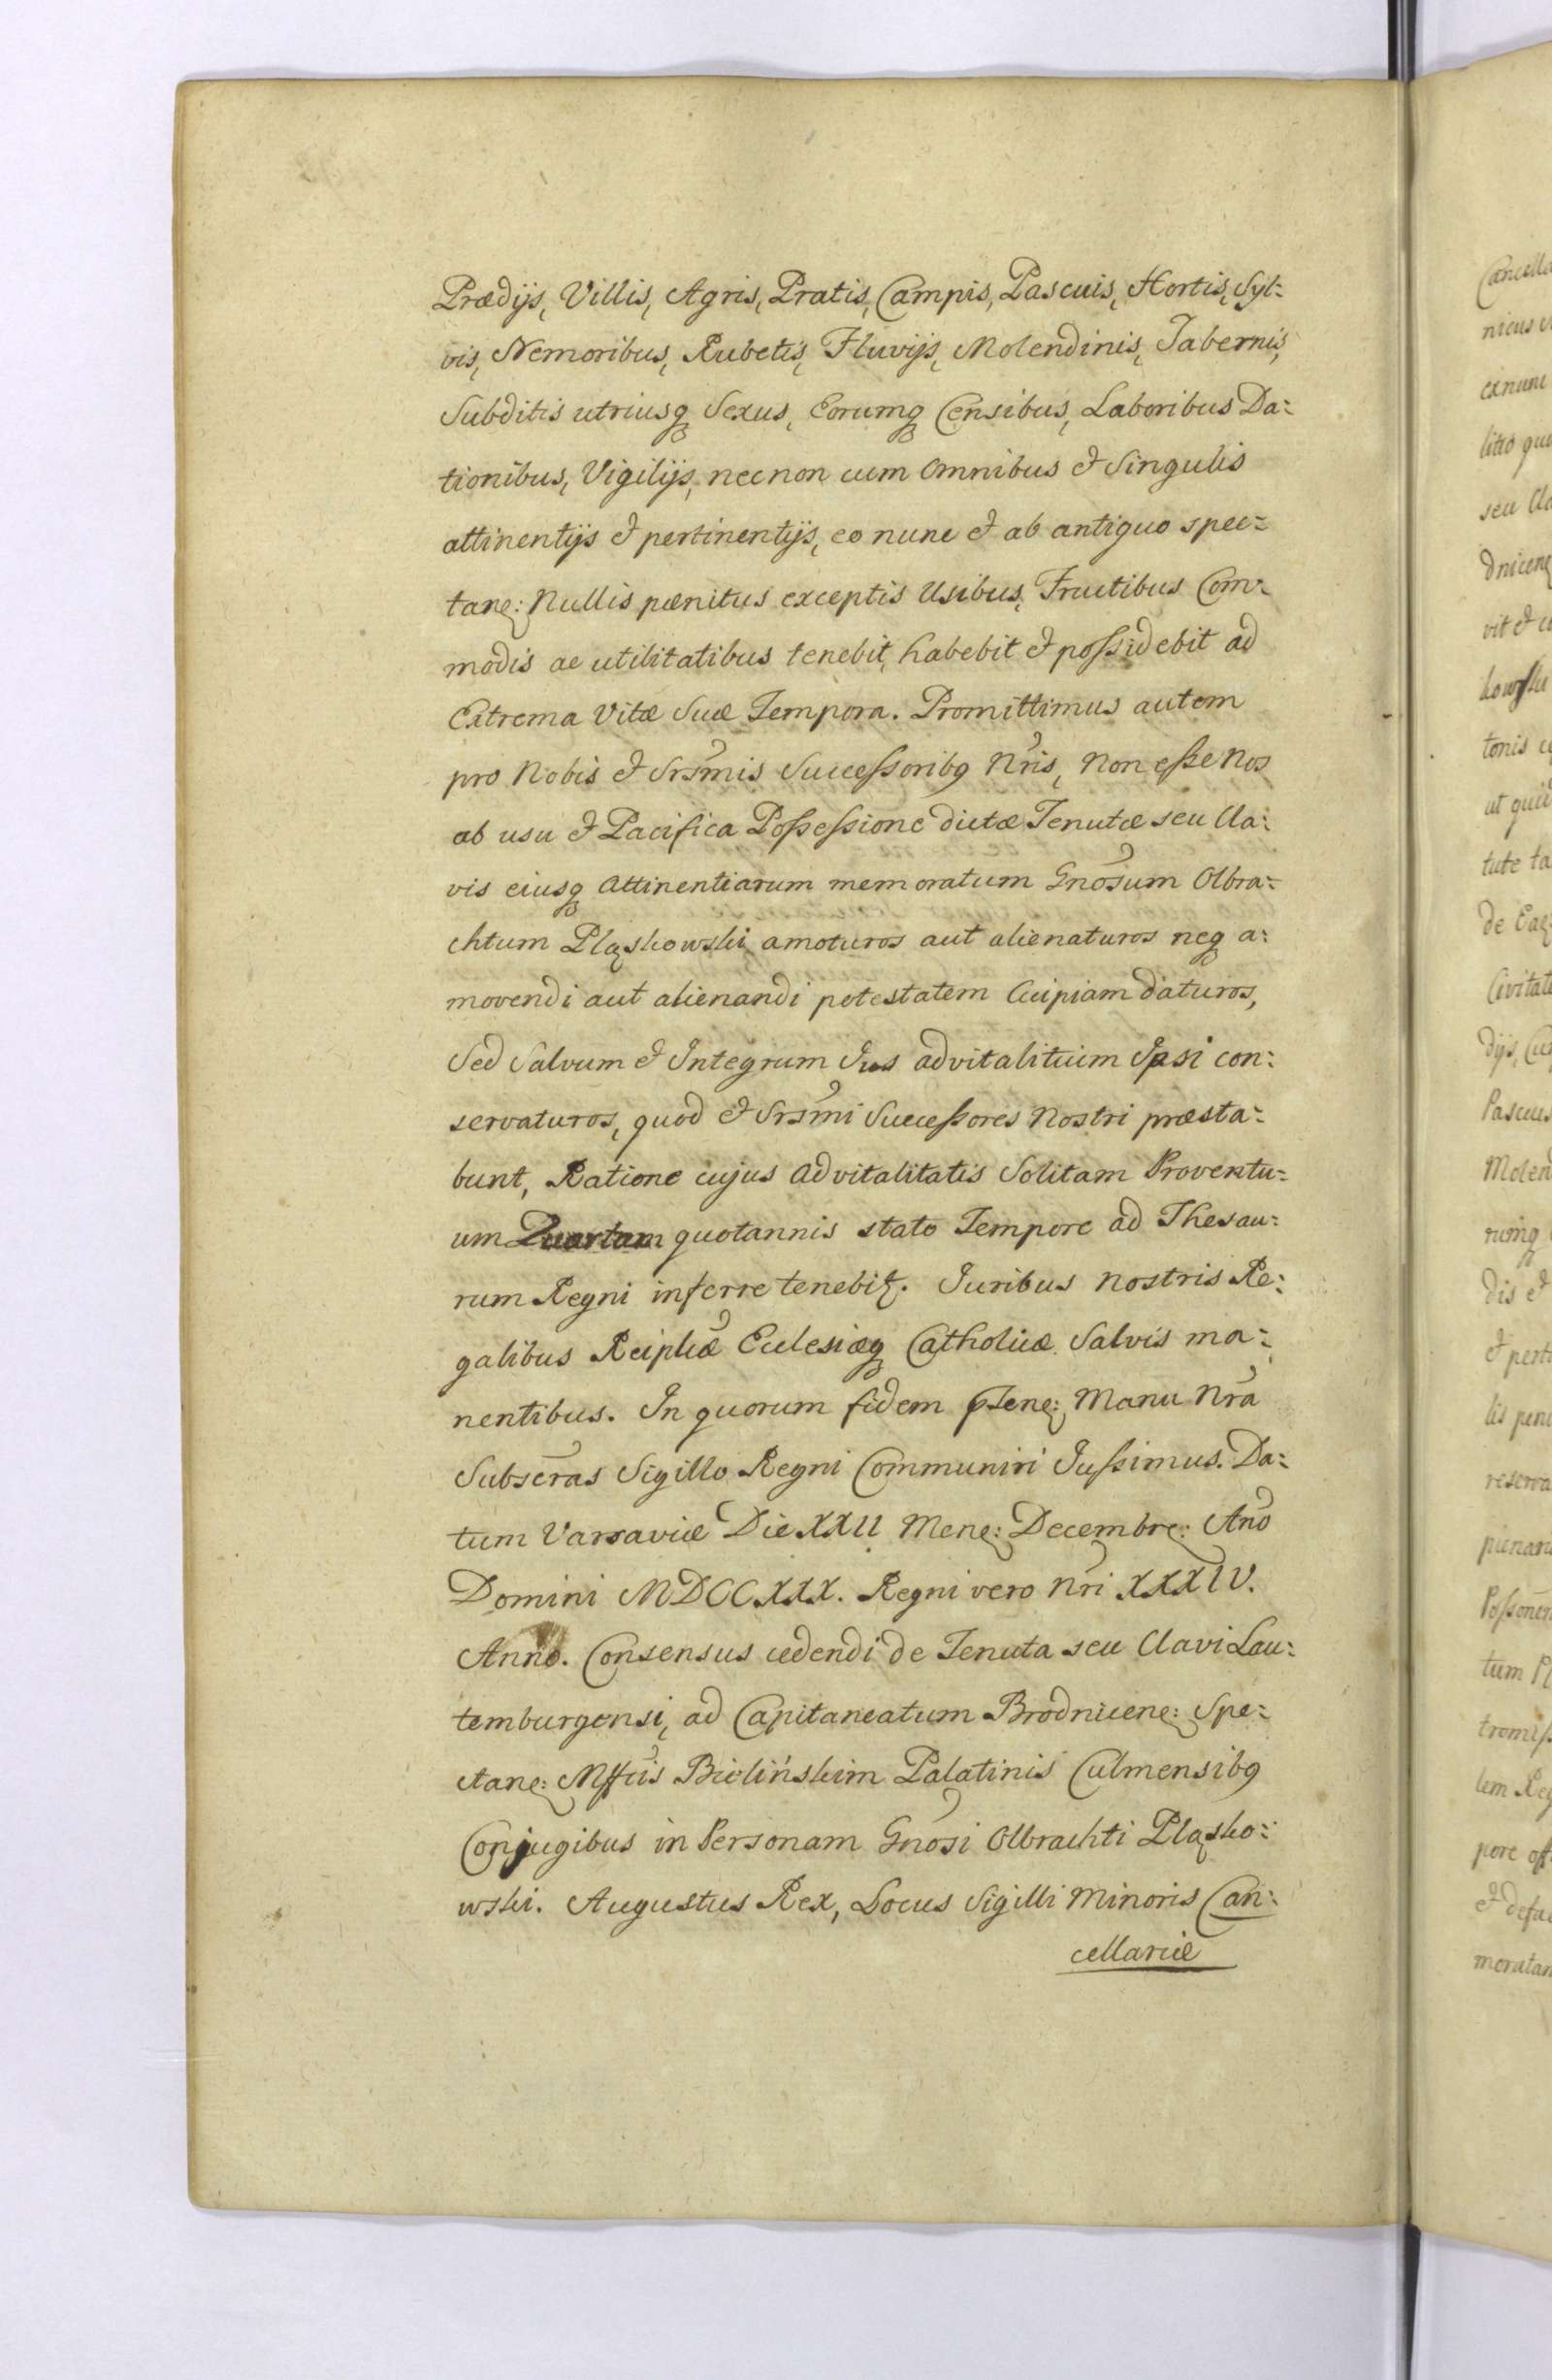 Prædijs, Villis, Agris, Pratis, Campis, Pascuis, Hortis, Syl:
vis, Nemoribus, Rubetis, Fluvijs, Molendinis, Tabernis,
Subditis utriusq Sexus, Eorumq Censibus, Laboribus Da:
tionibus, Vigilijs, necnon cum Omnibus et Singulis
attinentijs et pertinentijs, eo nunc et ab antiquo spec:
tane: Nullis pænitus exceptis Usibus, Fructibus Com:
modis ac utilitatibus tenebit, habebit et possidebit ad
Extrema Vitæ Suæ Tempora. Promittimus autem
pro Nobis et Srsmis Successoribq Nris, Non esse Nos
ab usu et Pacifica Possessione dictæ Tenutæ seu Cla:
vis eiusq Attinentiarum memoratum Gnosum Olbra:
chtum Pląskowski amoturos aut alienaturos neq a:
movendi aut alienandi potestatem Cuipiam daturos,
Sed Salvum et Integrum Jus advitalitium Ipsi con:
servaturos, quod et Srsmi Successores Nostri præsta:
bunt, Ratione cujus Advitalitatis Solitam Proventu:
um Quartam quotannis stato Tempore ad Thesau:
rum Regni inferre tenebit. Juribus Nostris Re:
galibus Reiplcæ Ecclesiæq Catholicæ Salvis ma:
nentibus. In quorum fidem Manu Nra
Subscras Sigillo Regni Communiri Jussimus. Da:
tum Varsaviæ Die XXII Mene: Decembre: Ano
Domini MDCCXXX. Regni vero Nri XXXIV.
Anno. Consensus cedendi de Tenuta seu Clavi Lau:
temburgensi, ad Capitaneatum Brodnicene: Spe:
ctane: Mffcis Bielińskim Palatinis Culmensibq
Conjugibus in Personam Gnosi Olbrachti Pląsko:
wski. Augustus Rex, Locus Sigilli Minoris Can:
cellariæ